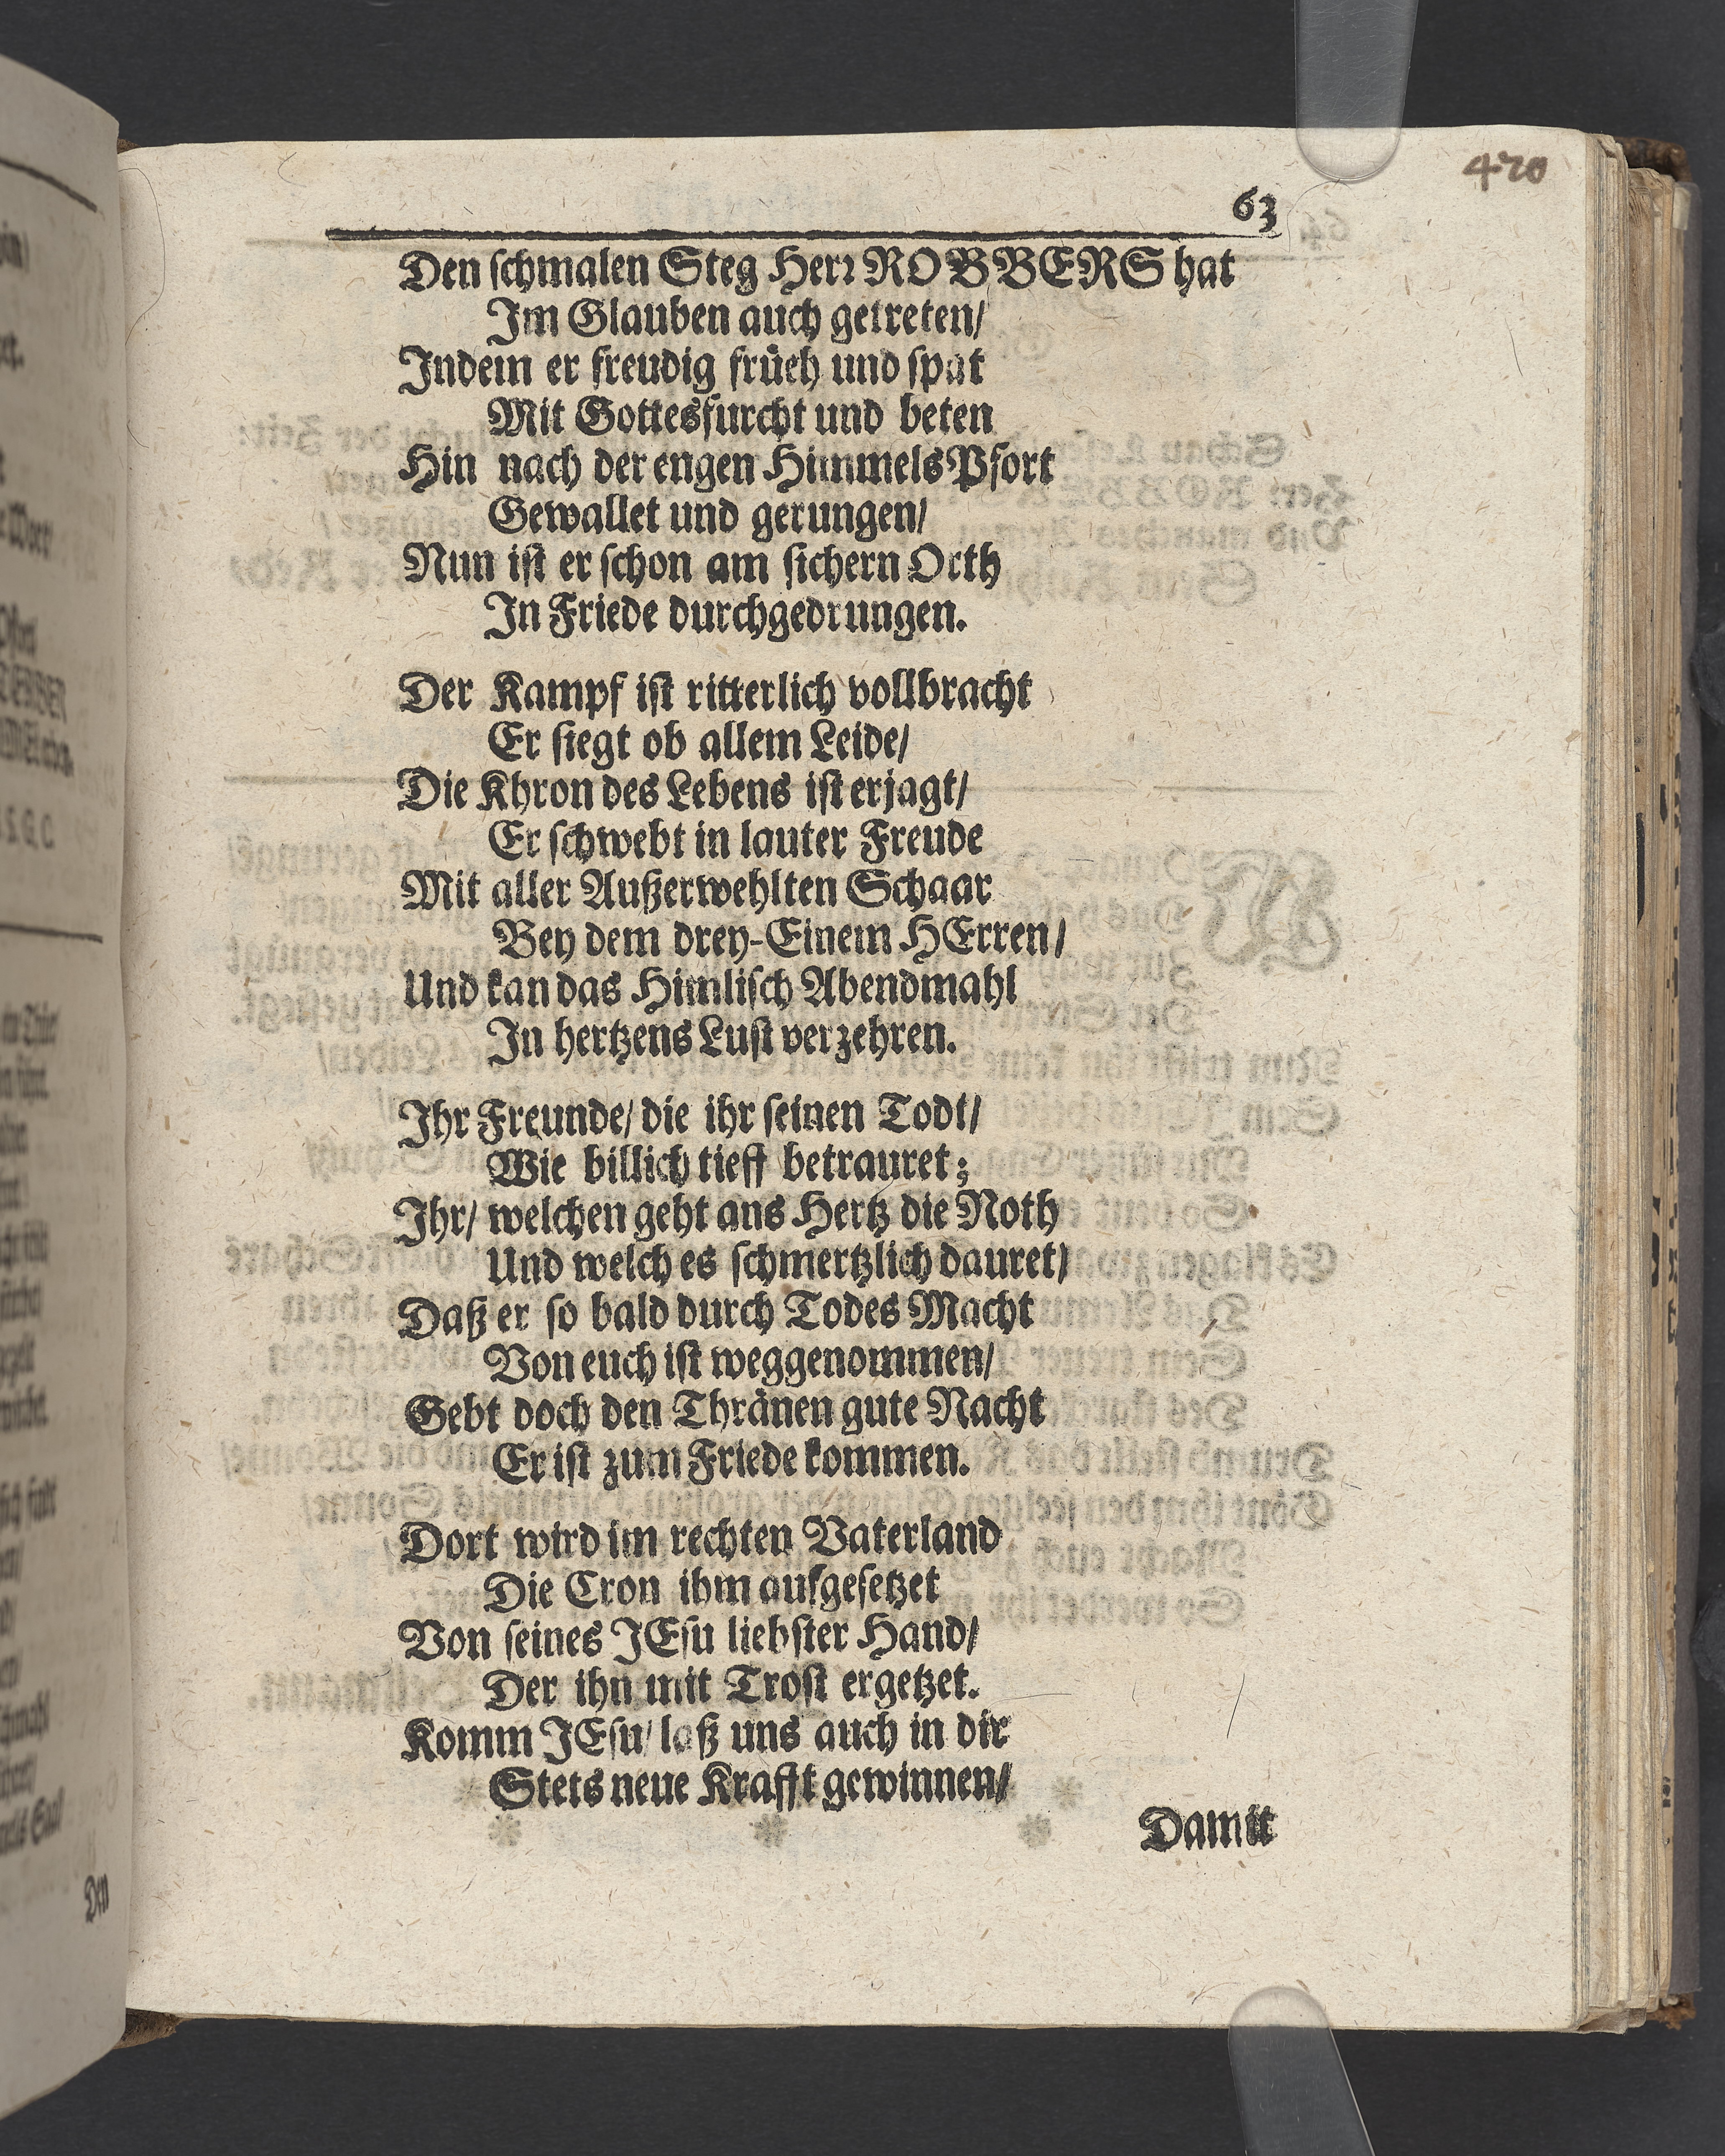 420
63
Den schmalen Steg Herr ROBBERS hat
Im Glauben auch getreten/
Indem er freudig früeh und spat
Mit Gottesfurcht und beten
Hin nach der engen HimmelsPfort
Gewallet und gerungen/
Nun ist er schon am sichern Orth
In Friede durchgedrungen.
Der Kampf ist ritterlich vollbracht
Er siegt ob allem Leide/
Die Khron des Lebens ist erjagt/
Er schwebt in lauter Freude
Mit aller Außerwehlten Schaar
Bey dem drey-Einem HErren/
Und kan das Himlisch Abendmahl
In hertzens Lust verzehren.
Ihr Freunde/ die ihr seinen Todt/
Wie billich tieff betrauret;
Ihr/ welchen geht ans Hertz die Noth
Und welch es schmertzlich dauret/
Daß er so bald durch Todes Macht
Von euch ist weggenommen/
Gebt doch den Thränen gute Nacht
Er ist zum Friede kommen.
Dort wird im rechten Vaterland
Die Cron ihm aufgesetzet
Von seines JEsu liebster Hand/
Der ihn mit Trost ergetzet.
Komm JEsu/ laß uns auch in dir
Stets neue Krafft gewinnen/
Damit